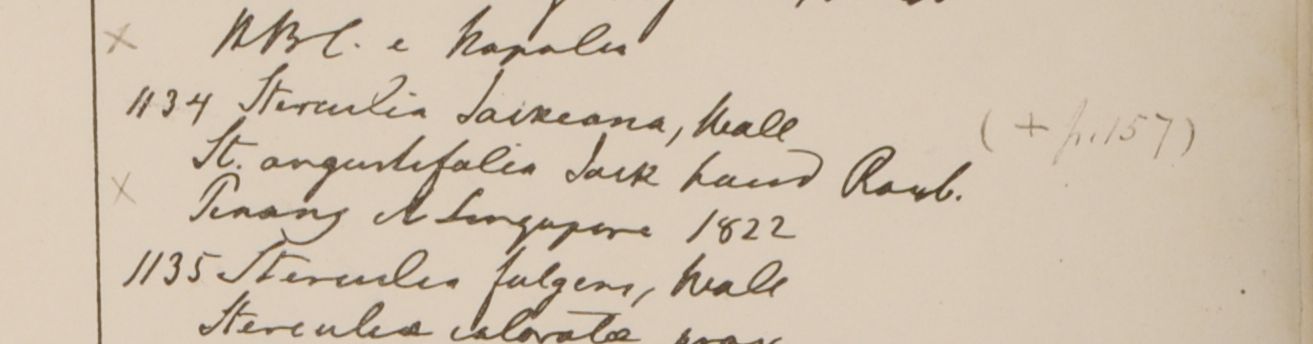 HBC. e Napalia
1134 Sterculia Jackeana, Wall (+ p.157)
St. angustifolia Jack haud Roxb.
Penang et Singapore 1822
1135 Sterculia fulgens, Wall
Sterculiae coloratae prox